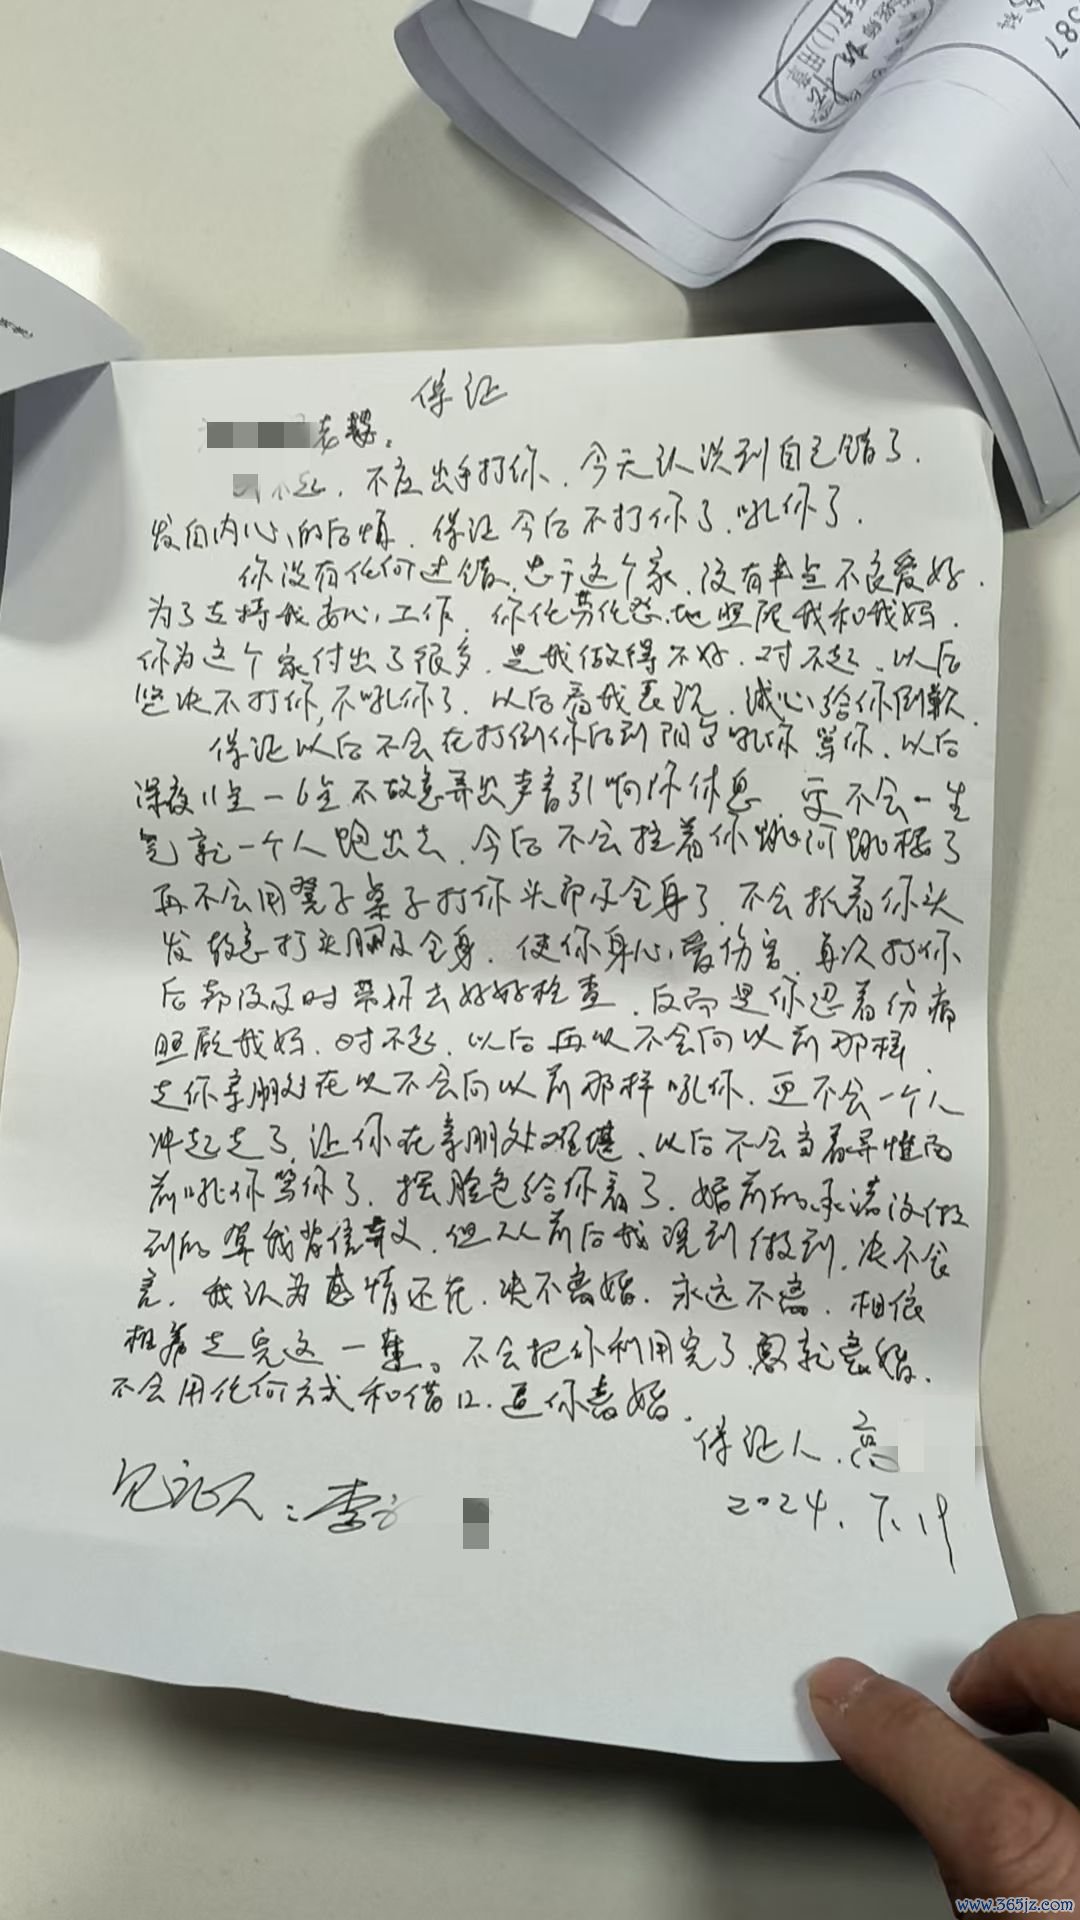 587
保证
老婆。
不起，不应出手打你、今天认识到自己错了.
发自内心的后悔. 保证今后不打你了.吼你了.
你没有任何过错.忠于这个家.没有半点不良爱好.
为了支持我安心工作. 你任劳任怨地照顾我和我妈.
你为这个家付出了很多.是我做得不好.对不起、以后
坚决不打你,不吼你了. 以后看我表现.诚心给你倒歉.
保证以后不会在打倒你后到阳台吼你骂你.以后
深夜11点一6点不故意弄出声音引响你休息 更不会一生
气就一个人跑出去.今后不会拉着你跳河跳楼了
再不会用凳子桌子打你头部及全身了.不会抓着你头
发故意打头部及全身. 使你身心受伤害.每次打你
后都没及时带你去好好检查.反而是你忍着伤痛
照顾我妈.对不起.以后再以不会向以前那样
走你亲朋处在以不会向以前那样吼你.更不会一个人
冲起走了.让你在亲朋处难堪、以后不会当着异性面
前吼你骂你了.摆脸色给你看了.婚前的承诺没做
到的算我背信弃义.但从前后我说到做到.决不食
言. 我认为感情还在.决不离婚.永远不离.相依
相养走完这一辈。不会把你利用完了就离婚.
不会用任何方式和借口.逼你离婚.
保证人.高
见证人:李
2024.7.19
www.365jz.com